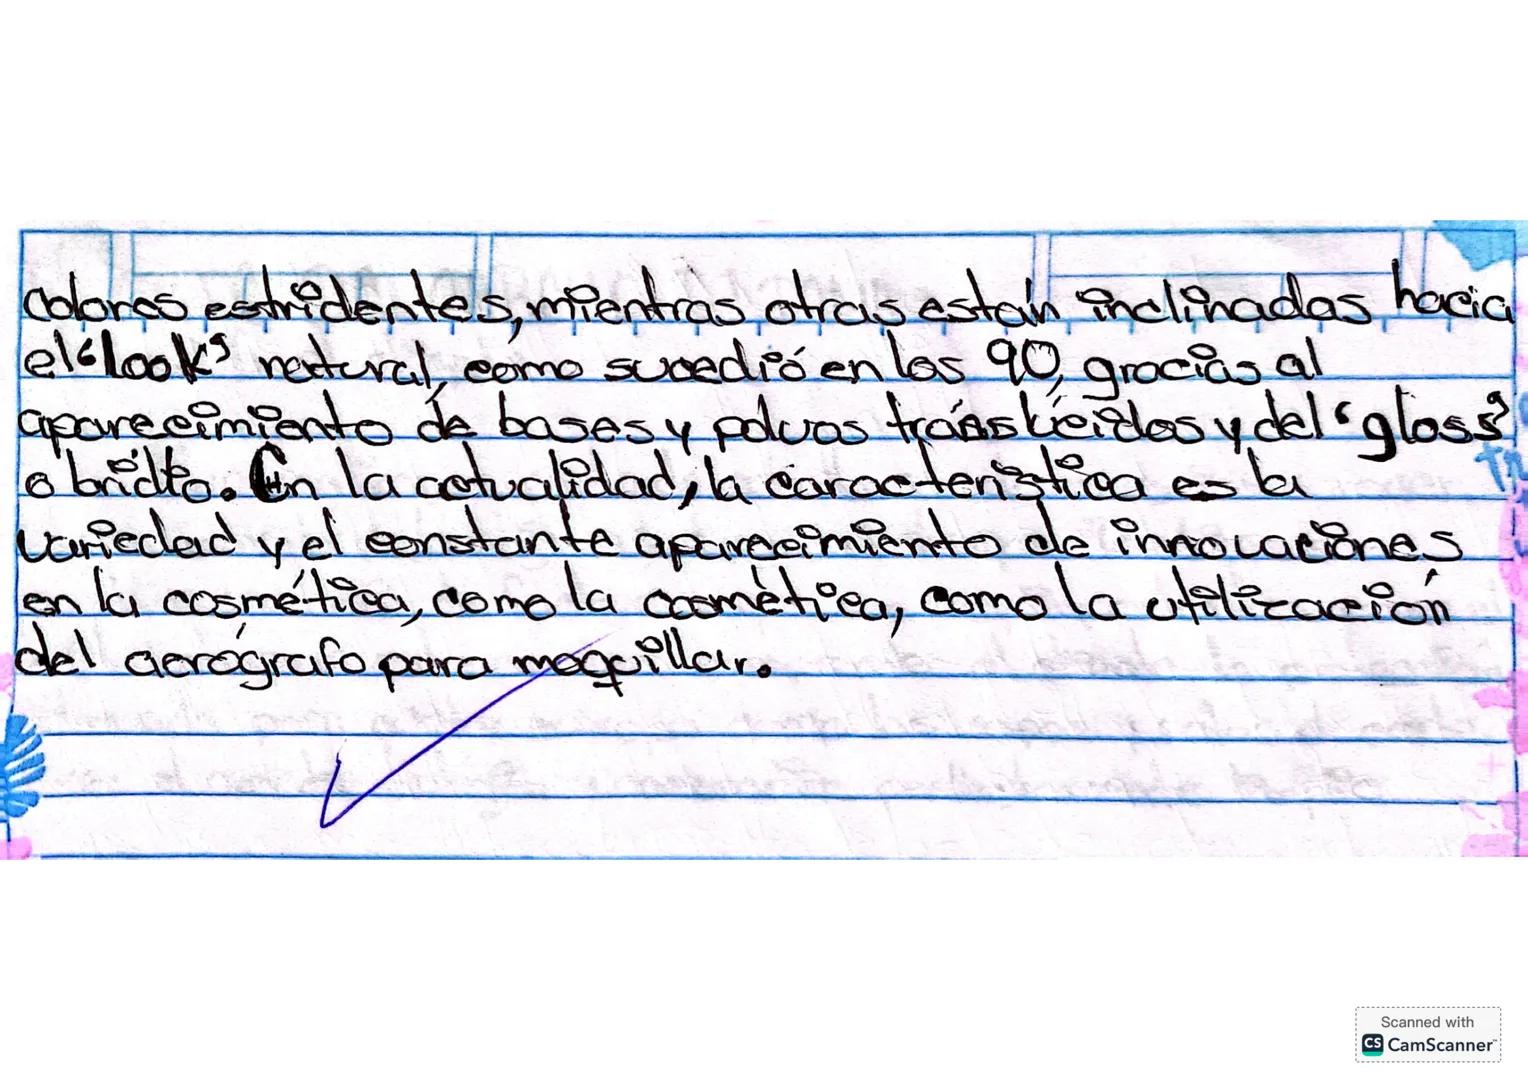 colores estridentes, mientras otras están inclinadas hacia
el 'look' natural, como sucedió en los 90, gracias al
aparecimiento de bases y polvos translúcidos y del 'gloss'
o brillo. En la actualidad, la característica es la
variedad y el constante aparecimiento de innovaciones
en la cosmética, como la cosmética, como la utilización
del aerógrafo para maquillar.
Scanned with
CS CamScanner